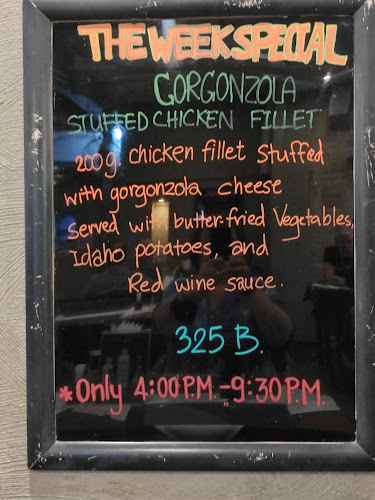 THE WEEK SPECIAL
GORGONZOLA
STUFFED CHICKEN FILLET
200g. chicken fillet stuffed
with gorgonzola cheese
Served with butter-fried Vegetables,
Idaho potatoes, and
Red wine sauce.
325 B.
*Only 4:00 P.M. - 9:30 P.M.